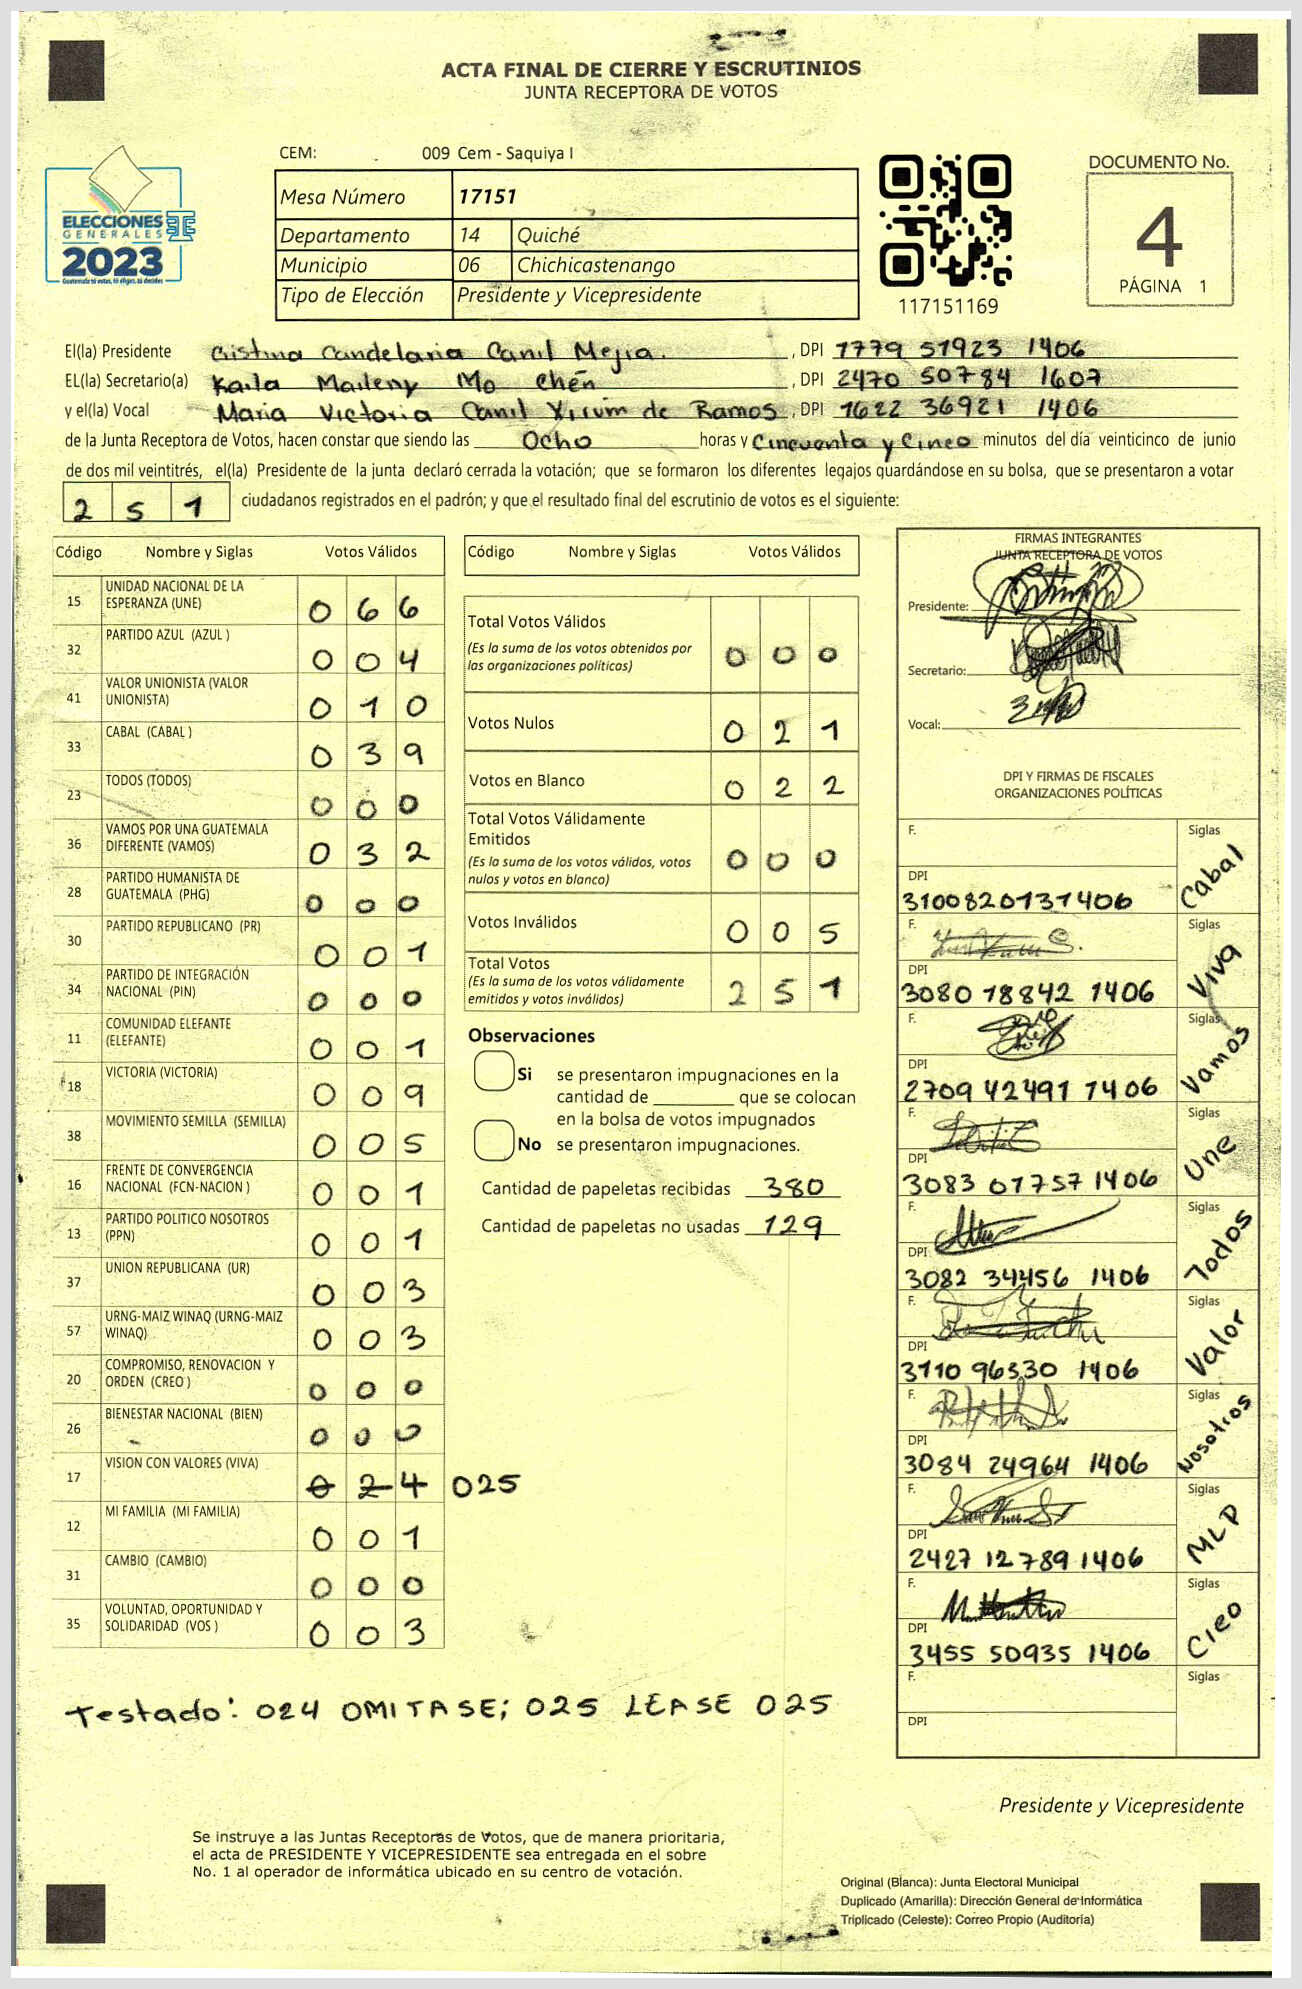 ACTA FINAL DE CIERRE Y ESCRUTINIOS
JUNTA RECEPTORA DE VOTOS
CEM: 009 Cem - Saquiya I
ELECCIONES
GENERALES
2023
Guatemala tú votas, tú eliges, tú decides
Mesa Número 17151
Departamento 14 Quiché
Municipio 06 Chichicastenango
Tipo de Elección Presidente y Vicepresidente
117151169
DOCUMENTO No.
4
PÁGINA 1
El(la) Presidente Cristina Candelaria Canil Mejia. , DPI 1779 51923 1406
EL(la) Secretario(a) Karla Maileny Mo Chén , DPI 2470 50784 1607
y el(la) Vocal Maria Victoria Canil Xirúm de Ramos , DPI 1622 36921 1406
de la Junta Receptora de Votos, hacen constar que siendo las Ocho horas y Cincuenta y Cinco minutos del día veinticinco de junio
de dos mil veintitrés, el(la) Presidente de la junta declaró cerrada la votación; que se formaron los diferentes legajos guardándose en su bolsa, que se presentaron a votar
2 5 1 ciudadanos registrados en el padrón; y que el resultado final del escrutinio de votos es el siguiente:
Código Nombre y Siglas Votos Válidos
15 UNIDAD NACIONAL DE LA
ESPERANZA (UNE) 0 6 6
32 PARTIDO AZUL (AZUL ) 0 0 4
41 VALOR UNIONISTA (VALOR
UNIONISTA) 0 1 0
33 CABAL (CABAL ) 0 3 9
23 TODOS (TODOS) 0 0 0
36 VAMOS POR UNA GUATEMALA
DIFERENTE (VAMOS) 0 3 2
28 PARTIDO HUMANISTA DE
GUATEMALA (PHG) 0 0 0
30 PARTIDO REPUBLICANO (PR) 0 0 1
34 PARTIDO DE INTEGRACIÓN
NACIONAL (PIN) 0 0 0
11 COMUNIDAD ELEFANTE
(ELEFANTE) 0 0 1
18 VICTORIA (VICTORIA) 0 0 9
38 MOVIMIENTO SEMILLA (SEMILLA) 0 0 5
16 FRENTE DE CONVERGENCIA
NACIONAL (FCN-NACION ) 0 0 1
13 PARTIDO POLITICO NOSOTROS
(PPN) 0 0 1
37 UNION REPUBLICANA (UR) 0 0 3
57 URNG-MAIZ WINAQ (URNG-MAIZ
WINAQ) 0 0 3
20 COMPROMISO, RENOVACION Y
ORDEN (CREO ) 0 0 0
26 BIENESTAR NACIONAL (BIEN) 0 0 0
17 VISION CON VALORES (VIVA) 0 2 4 025
12 MI FAMILIA (MI FAMILIA) 0 0 1
31 CAMBIO (CAMBIO) 0 0 0
35 VOLUNTAD, OPORTUNIDAD Y
SOLIDARIDAD (VOS ) 0 0 3
Código Nombre y Siglas Votos Válidos
Total Votos Válidos
(Es la suma de los votos obtenidos por
las organizaciones políticas) 0 0 0
Votos Nulos 0 2 1
Votos en Blanco 0 2 2
Total Votos Válidamente
Emitidos
(Es la suma de los votos válidos, votos
nulos y votos en blanco) 0 0 0
Votos Inválidos 0 0 5
Total Votos
(Es la suma de los votos válidamente
emitidos y votos inválidos) 2 5 1
Observaciones
Si se presentaron impugnaciones en la
cantidad de ________ que se colocan
en la bolsa de votos impugnados
No se presentaron impugnaciones.
Cantidad de papeletas recibidas 380
Cantidad de papeletas no usadas 129
FIRMAS INTEGRANTES
JUNTA RECEPTORA DE VOTOS
Presidente:
Secretario:
Vocal:
DPI Y FIRMAS DE FISCALES
ORGANIZACIONES POLÍTICAS
F. Siglas
DPI Cabal
3100820131406
F. Siglas
DPI Viva
3080 18842 1406
F. Siglas
DPI Vamos
2709 42491 1406
F. Siglas
DPI Une
3083 01757 1406
F. Siglas
DPI Todos
3082 34456 1406
F. Siglas
DPI Valor
3110 96530 1406
F. Siglas
DPI Nosotros
3084 24964 1406
F. Siglas
DPI MLP
2427 12789 1406
F. Siglas
DPI Creo
3455 50935 1406
F. Siglas
DPI
Testado: 024 OMITASE; 025 LEASE 025
Presidente y Vicepresidente
Se instruye a las Juntas Receptoras de Votos, que de manera prioritaria,
el acta de PRESIDENTE Y VICEPRESIDENTE sea entregada en el sobre
No. 1 al operador de informática ubicado en su centro de votación.
Original (Blanca): Junta Electoral Municipal
Duplicado (Amarilla): Dirección General de Informática
Triplicado (Celeste): Correo Propio (Auditoría)